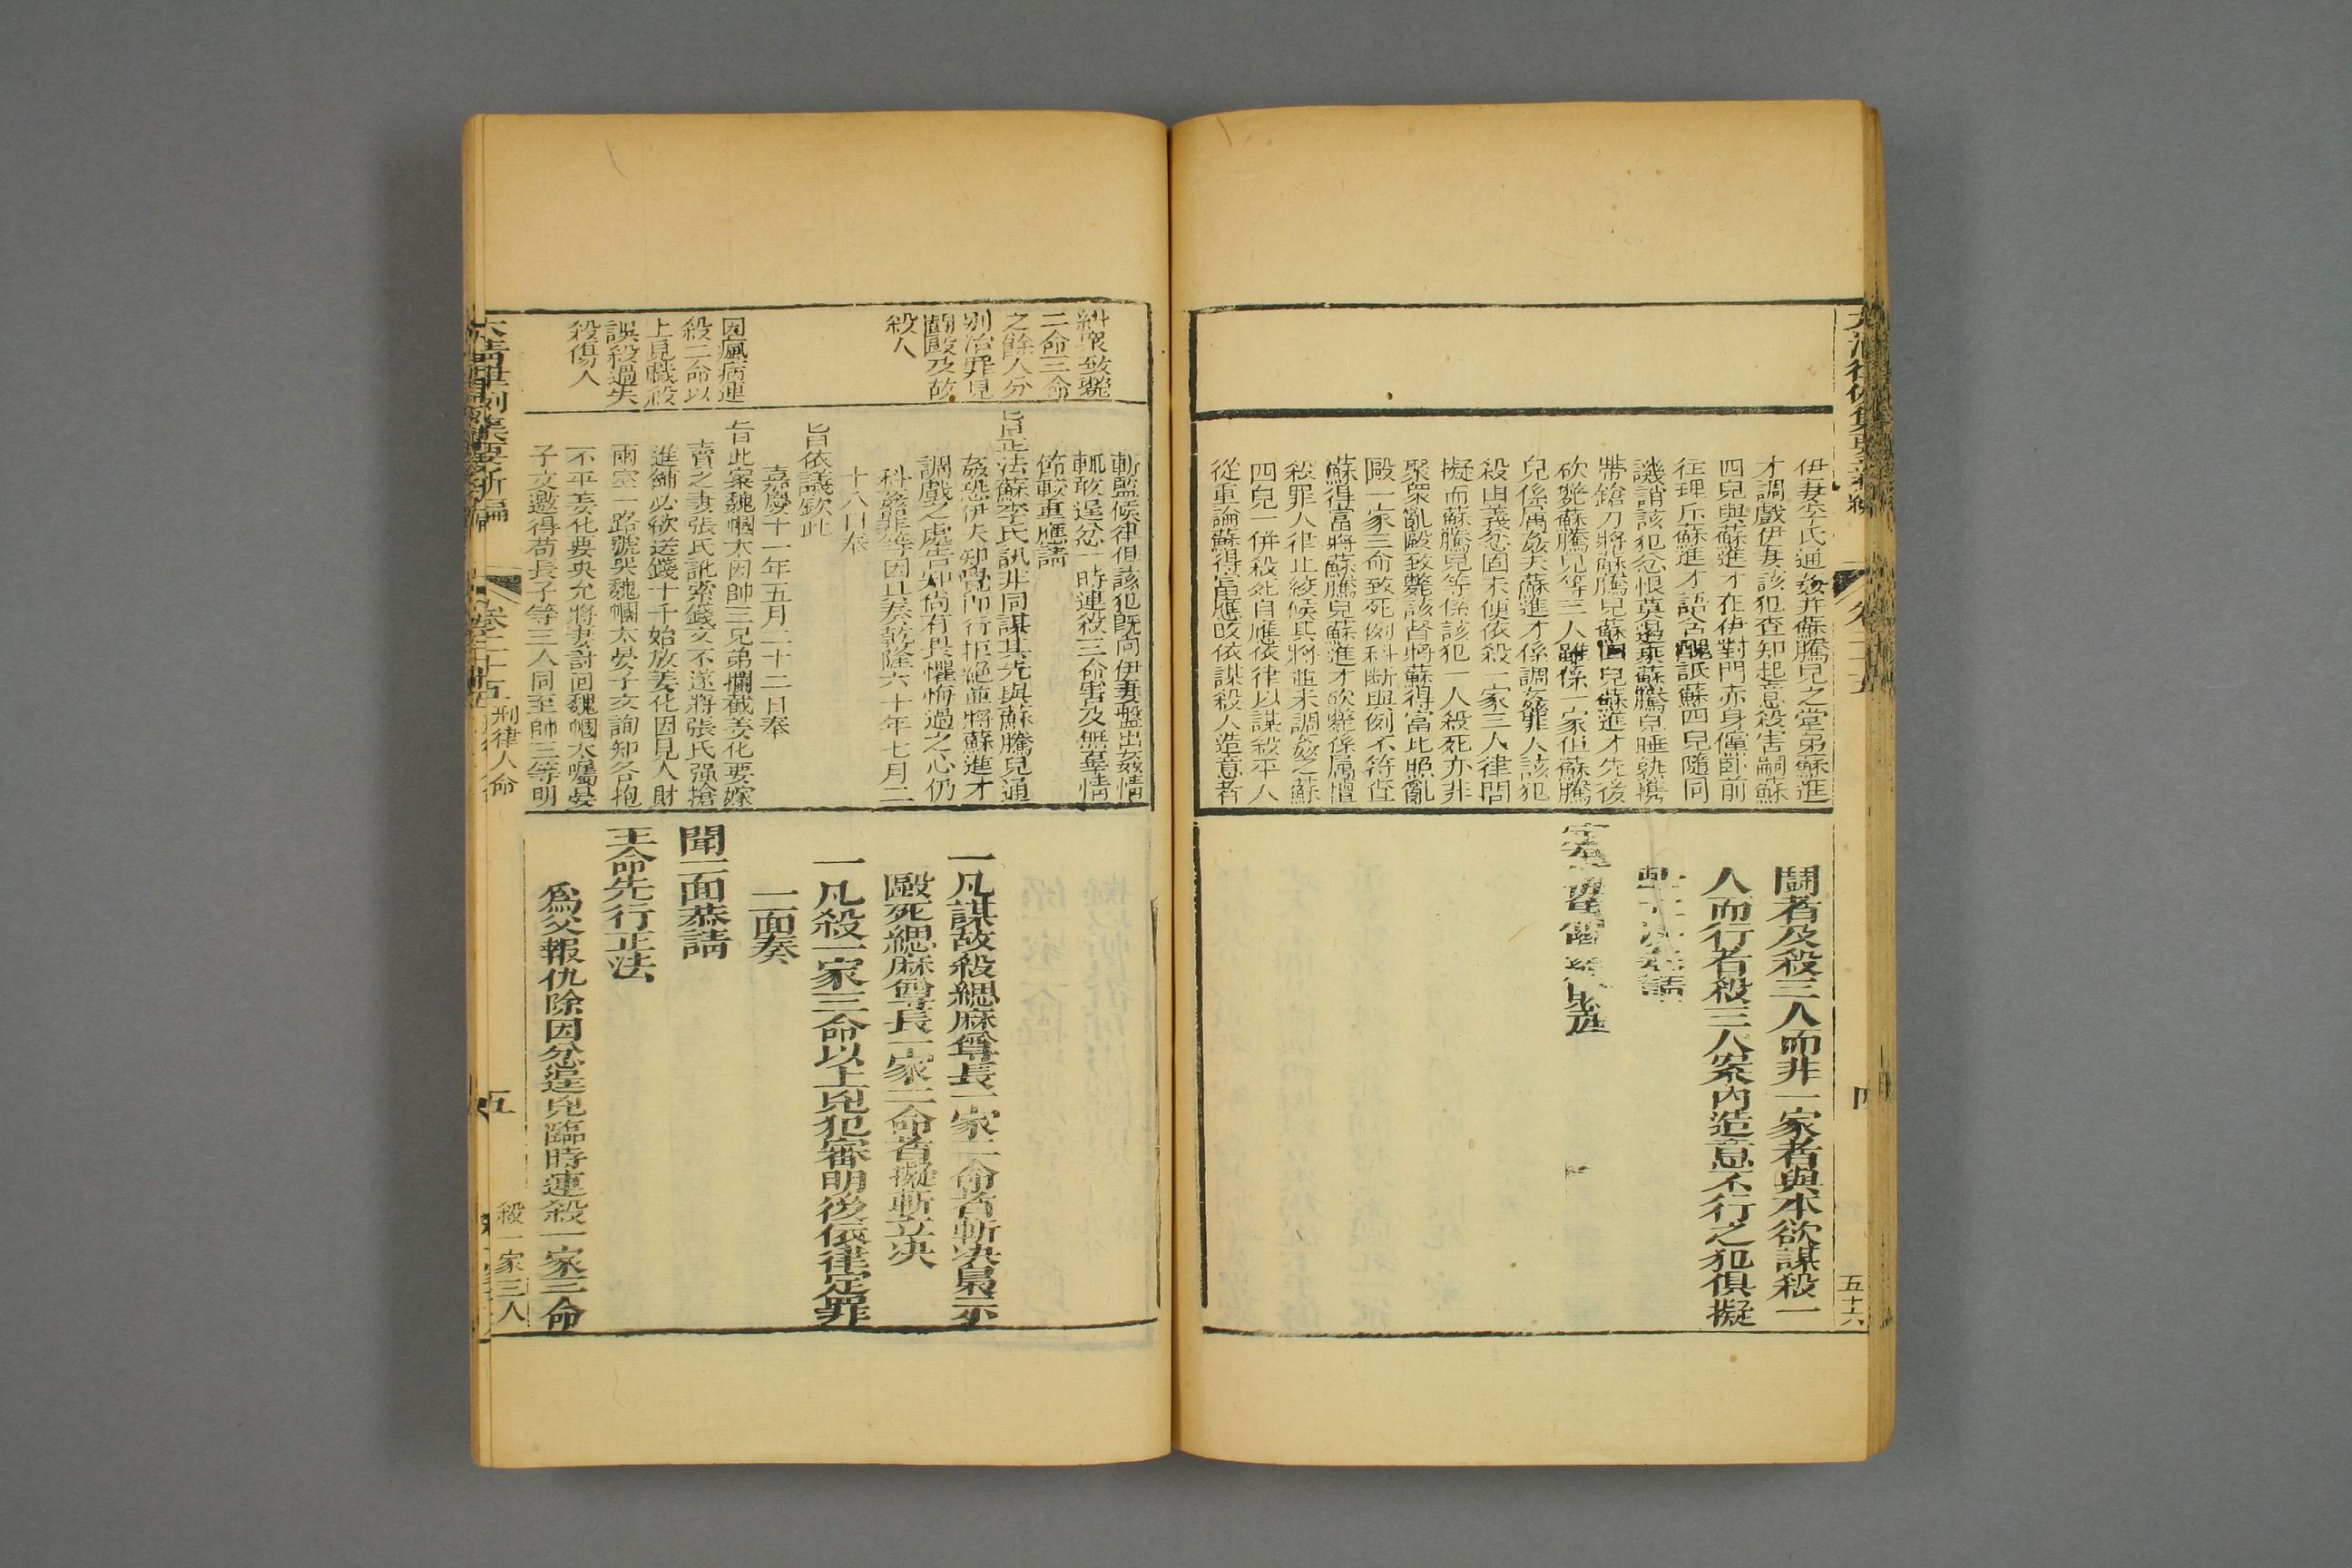 伊妻李氏通姦并蘇騰兒之堂弟蘇進
才調戲伊妻該犯查知起意殺害嗣蘇
四兒與蘇進才在伊對門亦身僱臥前
往理斥蘇進才語含醜詆蘇四兒隨同
譏誚該犯忿恨莫遏乘蘇騰兒睡熟携
帶鎗刀將蘇騰兒蘇四兒蘇進才先後
砍斃蘇騰兒等三人雖係一家但蘇騰
兒係屬姦夫蘇進才係調姦罪人該犯
殺由義忿固未便依殺一家三人律問
擬而蘇騰兒等係該犯一人殺死亦非
聚眾亂毆致斃該督將蘇得富比照亂
毆一家三命致死例科斷與例不符查
蘇得富將蘇騰兒蘇進才砍斃係屬擅
殺罪人律止絞候其將並未調姦之蘇
四兒一併殺死自應依律以謀殺平人
從重論蘇得富應改依謀殺人造意者
鬭者及殺三人而非一家者與本欲謀殺一
人而行者殺三人案內造意不行之犯俱擬
四
五十六
糾眾致斃
二命三命
之餘人分
別治罪見
鬭毆及故
殺人
因瘋病連
殺二命以
上見戲殺
誤殺過失
殺傷人
斬監候律但該犯既向伊妻盤出姦情
輒敢逞忿一時連殺三命害及無辜情
節較重應請
旨正法蘇李氏訊非同謀其先與蘇騰兒通
姦恐伊夫知覺即行拒絕並將蘇進才
調戲之處告知尚有畏懼悔過之心仍
科姦罪等因具奏乾隆六十年七月二
十八日奉
旨依議欽此
嘉慶十一年五月二十二日奉
旨此案魏幗太因帥三兄弟攔截姜化要嫁
賣之妻張氏訛索錢文不遂將張氏强搶
進舖必欲送錢十千始放姜化因見人財
兩空一路號哭魏幗太晏子文詢知各抱
不平姜化要央允將妻討回魏幗太囑晏
子文邀得苟長子等三人同至帥三等明
一凡謀故殺緦麻尊長一家二命者斬決梟示
毆死緦麻尊長一家二命者擬斬立決
一凡殺一家三命以上兇犯審明後依律定罪
一面奏
聞一面恭請
王命先行正法
為父報仇除因忿逞兇臨時連殺一家三命
大清律例集要新編
卷二十五
刑律人命
五
殺一家三人